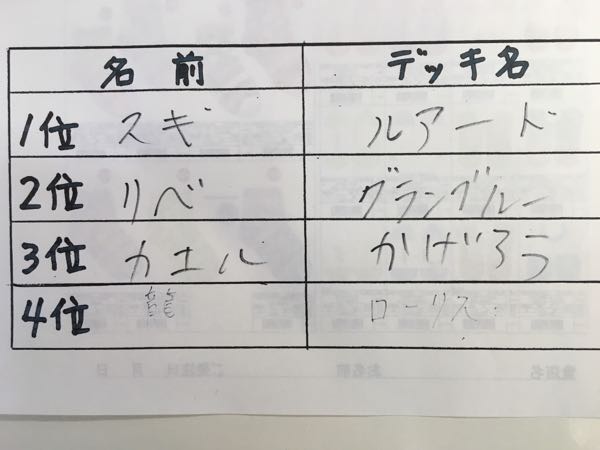 名前 デッキ名
1位 スギ ルアード
2位 リベ グランブルー
3位 カエル かげろう
4位 ローリス